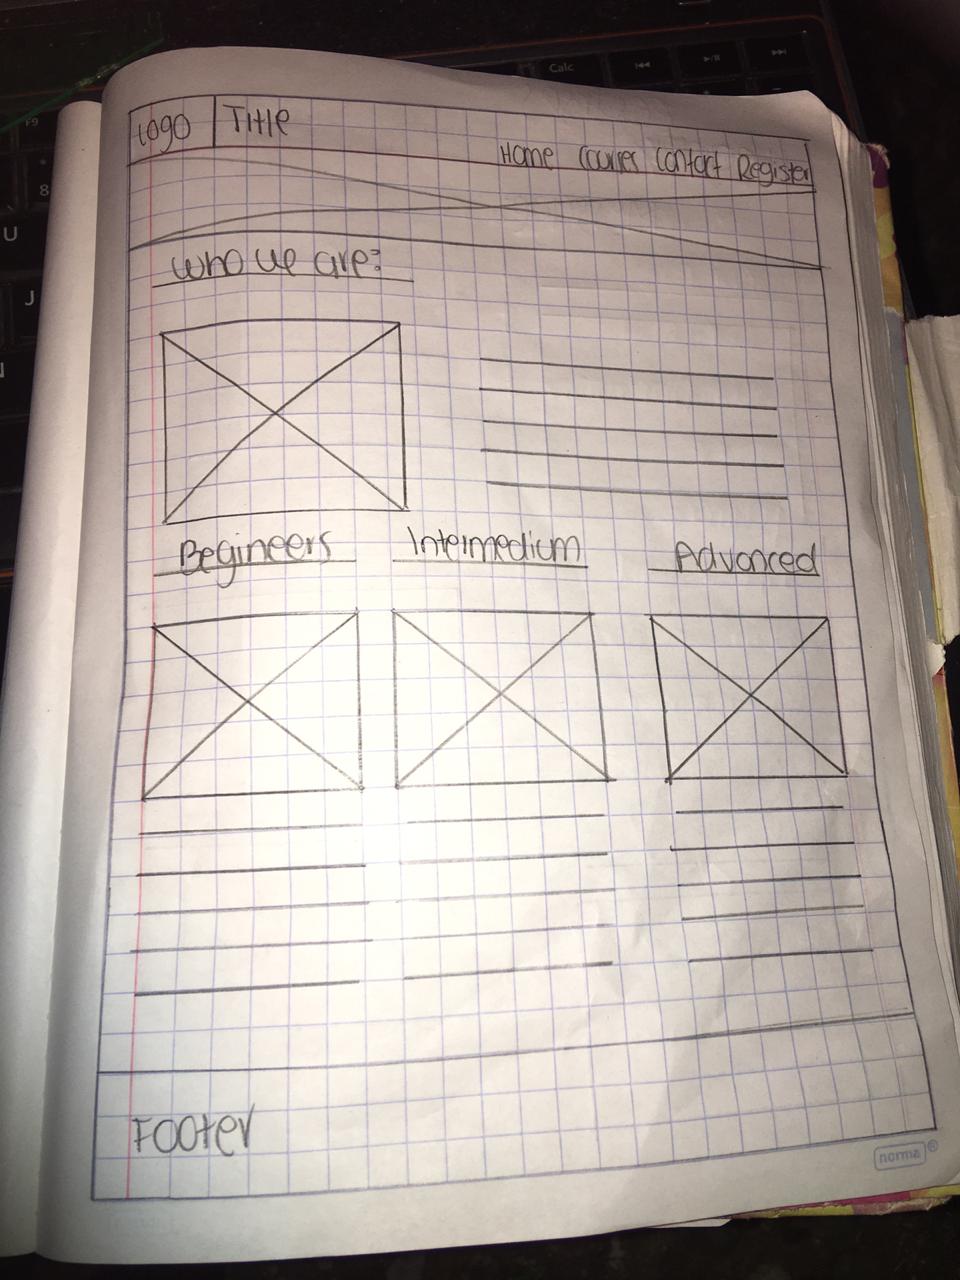 Calc
F9
8
U
J
Logo Title
Home Courses Contact Register
Who we are?
Begineers Intermedium Advanced
Footer
norma®